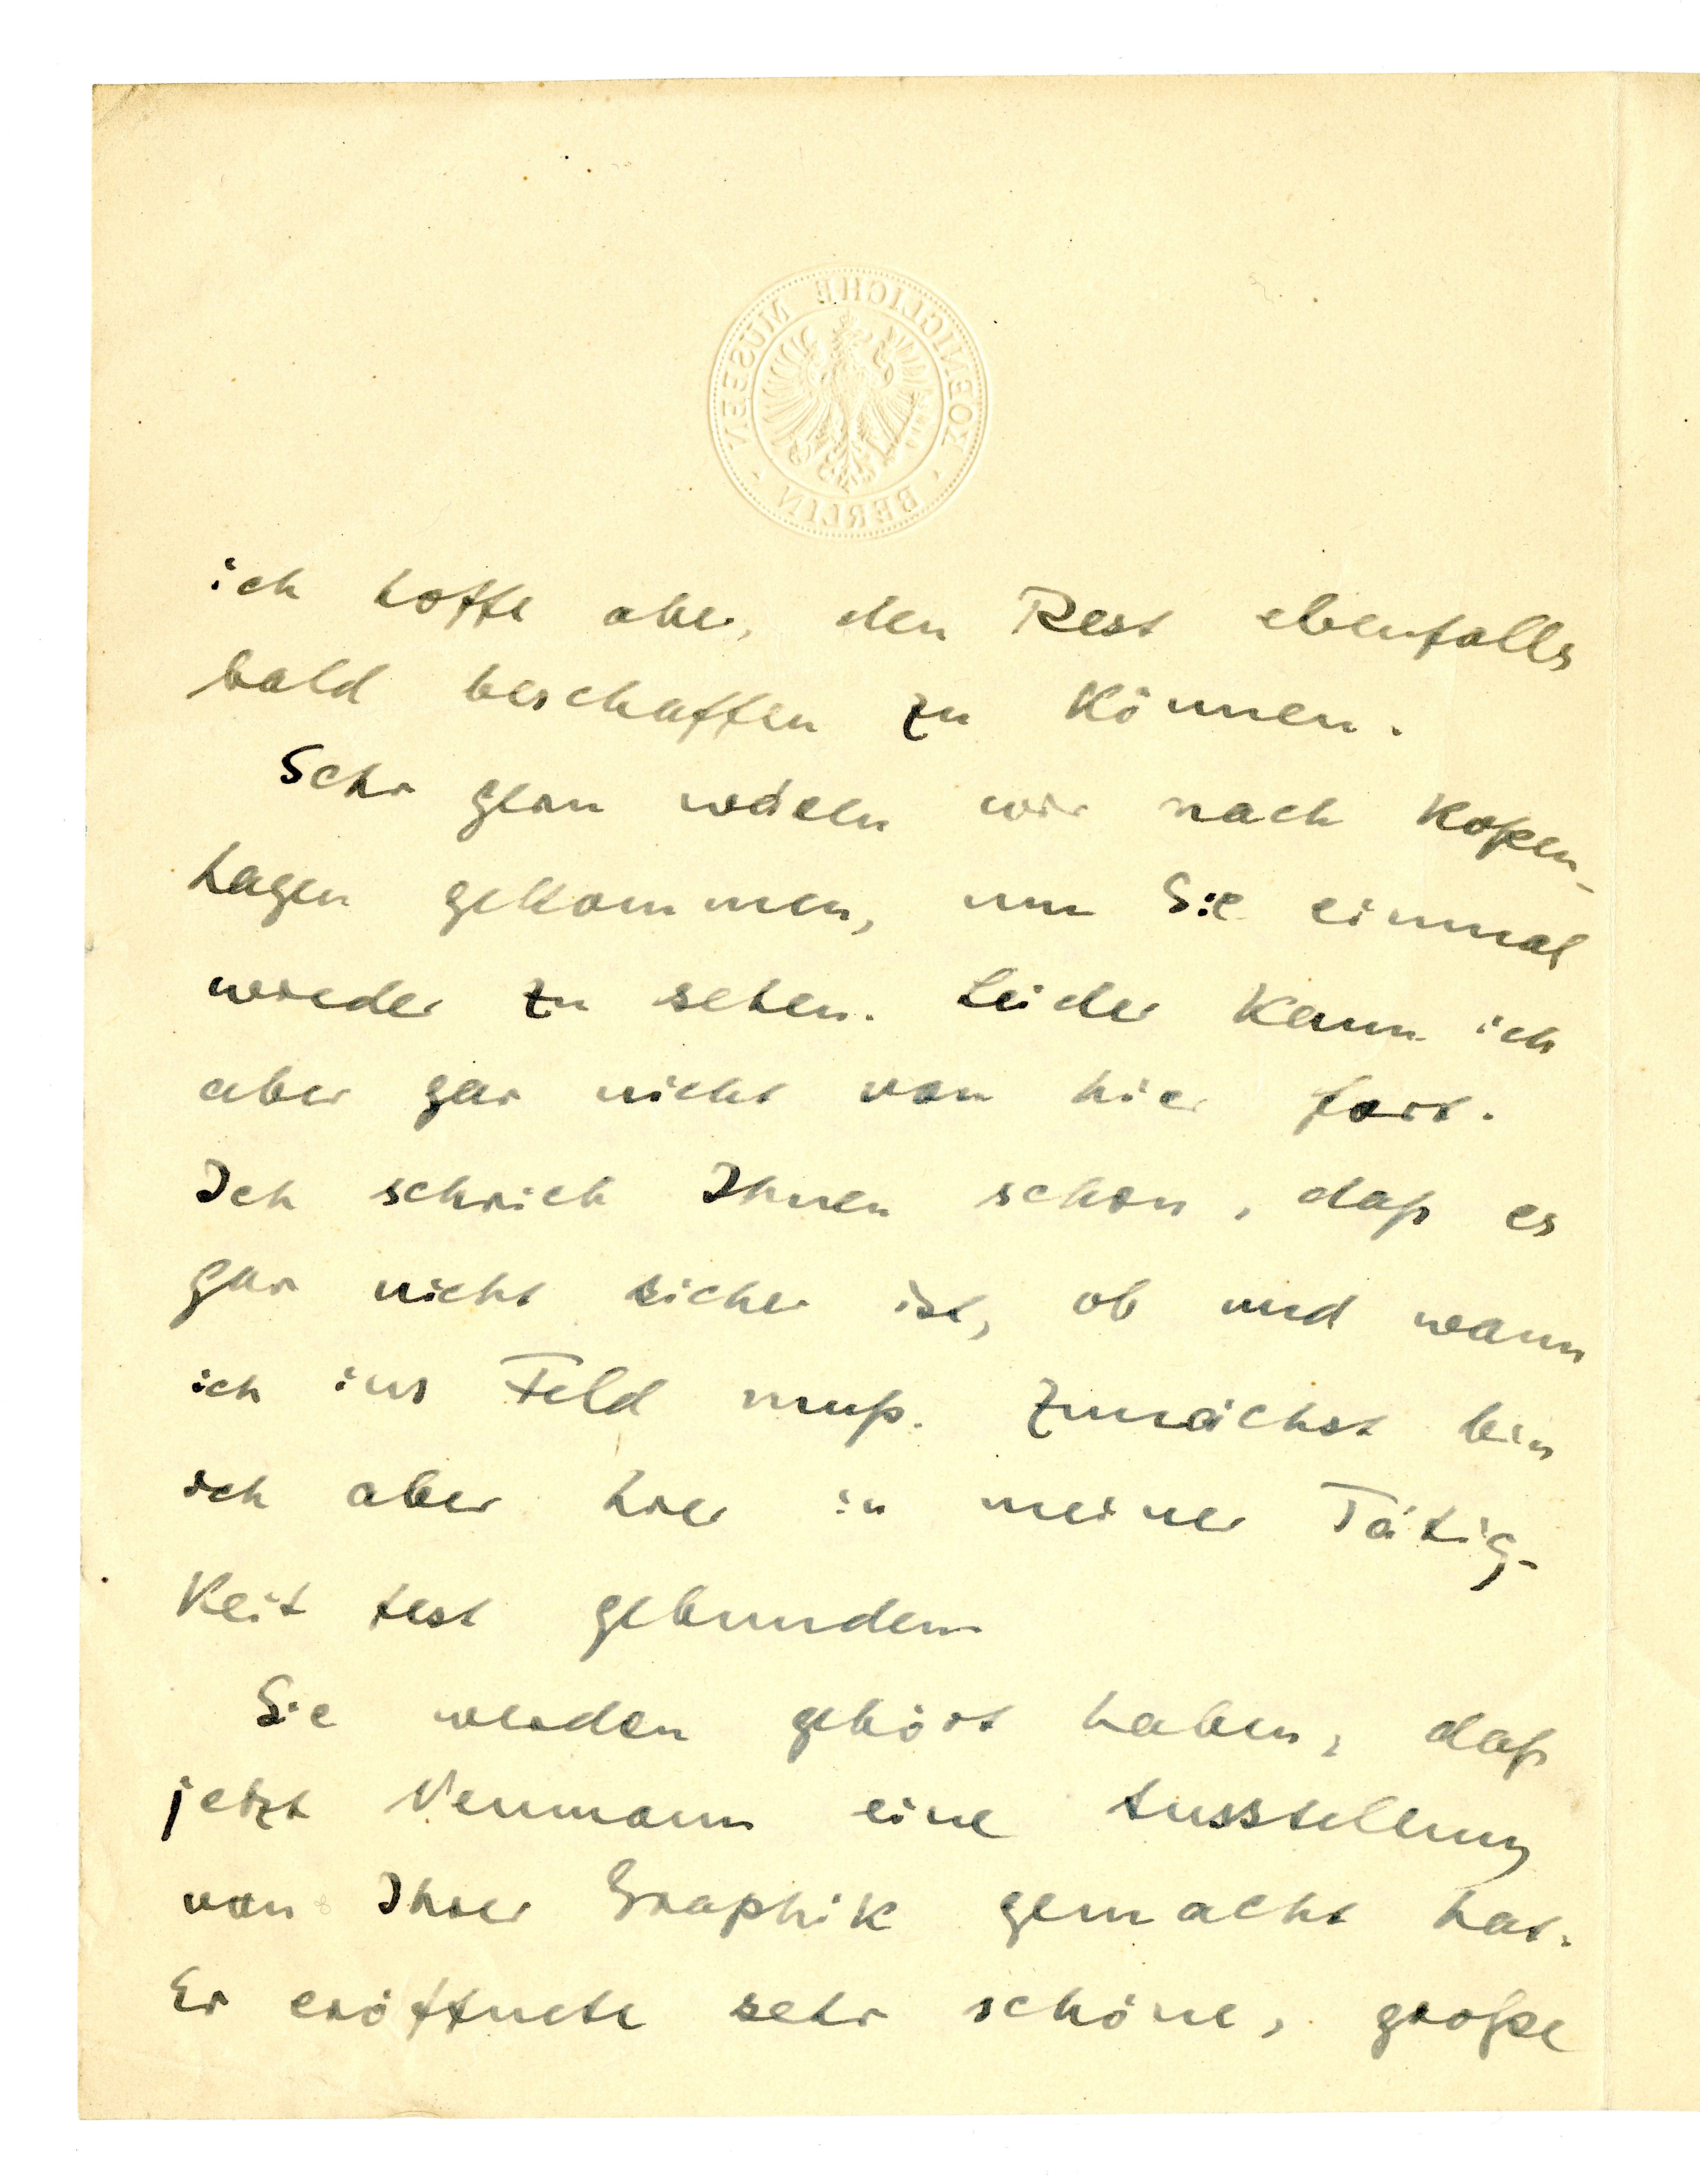 KOENIGLICHE MUSEEN
BERLIN
ich hoffe aber, den Rest ebenfalls
bald beschaffen zu können.
Sehr gern wären wir nach Kopen-
hagen gekommen, um Sie einmal
wieder zu sehen. Leider kann ich
aber gar nicht von hier fort.
Ich schrieb Ihnen schon, daß es
gar nicht sicher ist, ob und wann
ich ins Feld muß. Zunächst bin
ich aber hier in meiner Tätig-
keit fest gebunden.
Sie werden gehört haben, daß
jetzt Neumann eine Ausstellung
von Ihrer Graphik gemacht hat.
Er eröffnete sehr schöne, große